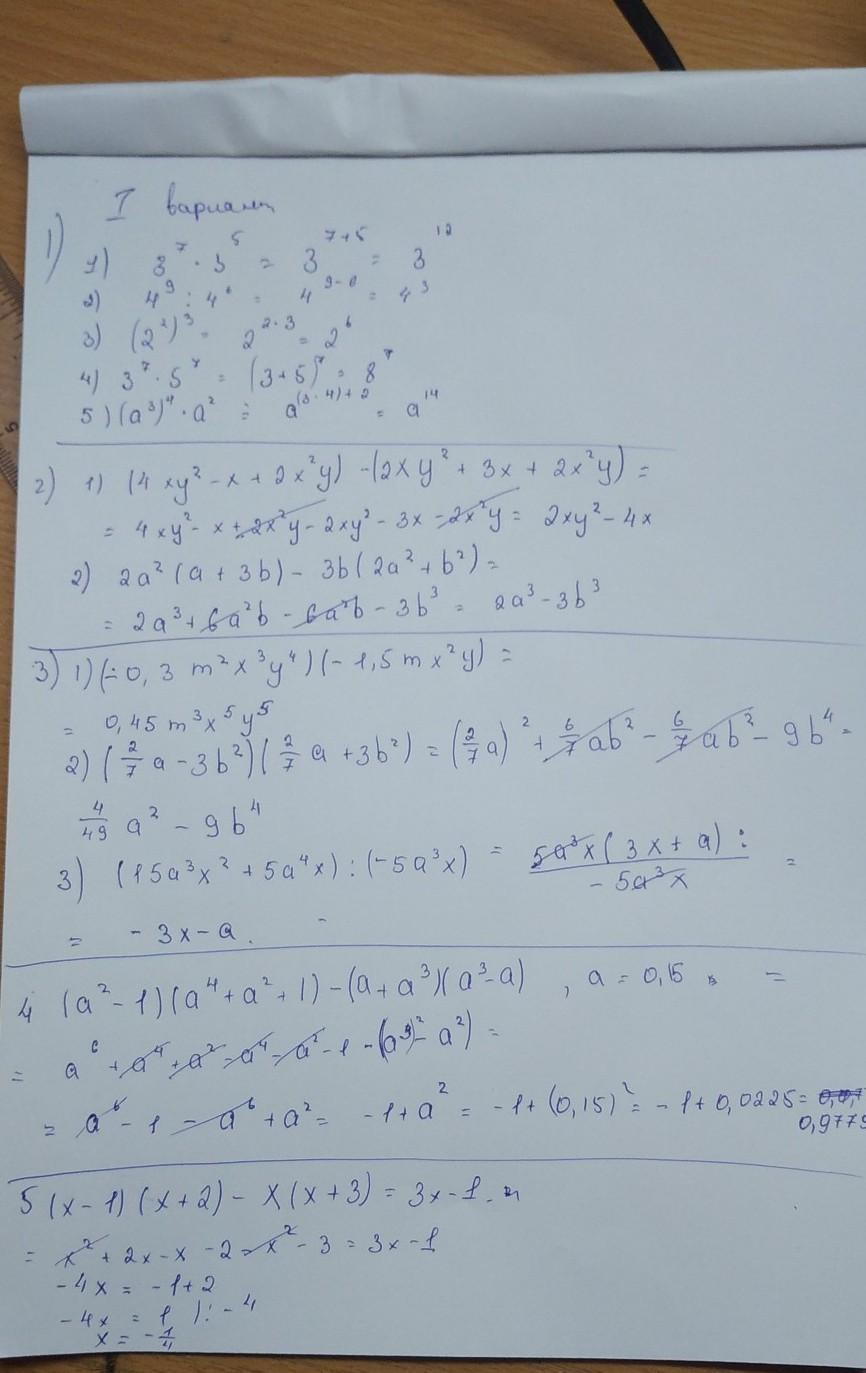 I вариант
1) 1) 3^7 · 3^5 = 3^{7+5} = 3^{12}
2) 4^9 : 4^6 = 4^{9-6} = 4^3
3) (2^2)^3 = 2^{2·3} = 2^6
4) 3^7 · 5^7 = (3+5)^7 = 8^7
5) (a^3)^4 · a^2 = a^{(3·4)+2} = a^{14}
2) 1) (4xy^2 - x + 2x^2y) - (2xy^2 + 3x + 2x^2y) =
= 4xy^2 - x + 2x^2y - 2xy^2 - 3x - 2x^2y = 2xy^2 - 4x
2) 2a^2(a + 3b) - 3b(2a^2 + b^2) =
= 2a^3 + 6a^2b - 6a^2b - 3b^3 = 2a^3 - 3b^3
3) 1) (-0,3 m^2x^3y^4)(-1,5mx^2y) =
= 0,45 m^3x^5y^5
2) (2/7 a - 3b^2)(2/7 a + 3b^2) = (2/7 a)^2 + 6/7 ab^2 - 6/7 ab^2 - 9b^4 =
4/49 a^2 - 9b^4
3) (15a^3x^2 + 5a^4x) : (-5a^3x) = 5a^3x(3x + a) : / -5a^3x =
= -3x - a.
4 (a^2 - 1)(a^4 + a^2 + 1) - (a + a^3)(a^3 - a), a = 0,15 =
= a^6 + a^4 + a^2 - a^4 - a^2 - 1 - (a^3)^2 - a^2) =
= a^6 - 1 - a^6 + a^2 = -1 + a^2 = -1 + (0,15)^2 = -1 + 0,0225 =
0,9775
5 (x - 1)(x + 2) - x(x + 3) = 3x - 1
= x^2 + 2x - x - 2 - x^2 - 3 = 3x - 1
-4x = -1 + 2
-4x = 1 ) : -4
x = -1/4